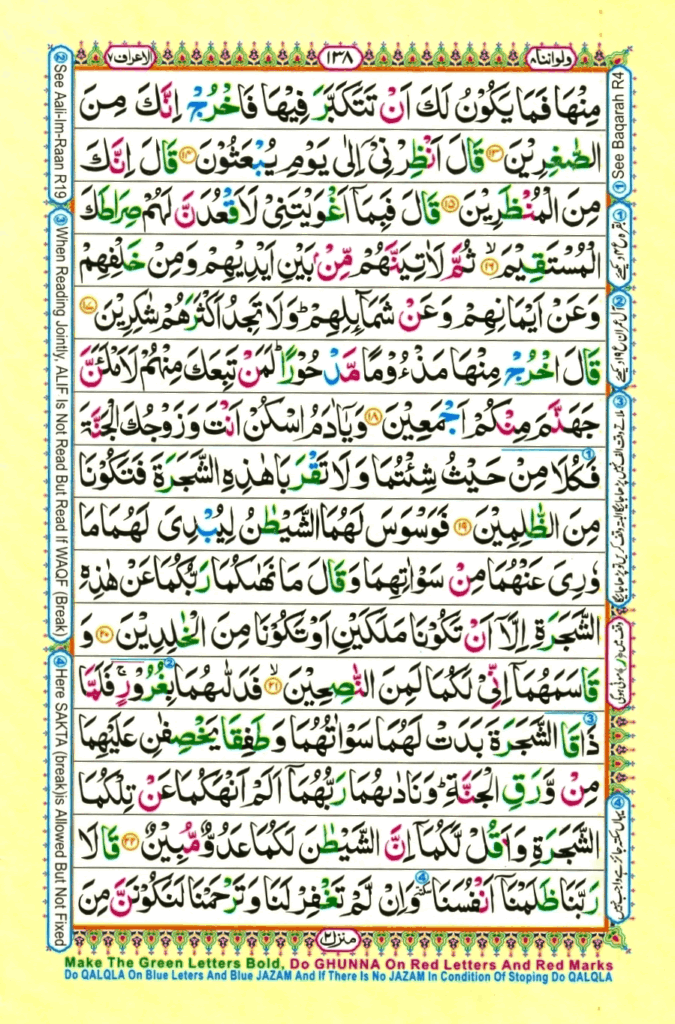 الاعراف ٧
١٣٨
ولواننا ٨
مِنْهَا فَمَا يَكُوْنُ لَكَ اَنْ تَتَكَبَّرَ فِيْهَا فَاخْرُجْ اِنَّكَ مِنَ
الصّٰغِرِيْنَ ﴿١٣﴾ قَالَ اَنْظِرْنِيْۤ اِلٰى يَوْمِ يُبْعَثُوْنَ ﴿١٤﴾ قَالَ اِنَّكَ
مِنَ الْمُنْظَرِيْنَ ﴿١٥﴾ قَالَ فَبِمَاۤ اَغْوَيْتَنِيْ لَاَقْعُدَنَّ لَهُمْ صِرَاطَكَ
الْمُسْتَقِيْمَ ﴿١٦﴾ ثُمَّ لَاٰتِيَنَّهُمْ مِّنْۢ بَيْنِ اَيْدِيْهِمْ وَمِنْ خَلْفِهِمْ
وَعَنْ اَيْمَانِهِمْ وَعَنْ شَمَآئِلِهِمْ ؕ وَلَا تَجِدُ اَكْثَرَهُمْ شٰكِرِيْنَ ﴿١٧﴾
قَالَ اخْرُجْ مِنْهَا مَذْءُوْمًا مَّدْحُوْرًا ؕ لَمَنْ تَبِعَكَ مِنْهُمْ لَاَمْلَئَنَّ
جَهَنَّمَ مِنْكُمْ اَجْمَعِيْنَ ﴿١٨﴾ وَيٰۤاٰدَمُ اسْكُنْ اَنْتَ وَزَوْجُكَ الْجَنَّةَ
فَكُلَا مِنْ حَيْثُ شِئْتُمَا وَلَا تَقْرَبَا هٰذِهِ الشَّجَرَةَ فَتَكُوْنَا
مِنَ الظّٰلِمِيْنَ ﴿١٩﴾ فَوَسْوَسَ لَهُمَا الشَّيْطٰنُ لِيُبْدِيَ لَهُمَا مَا
وٗرِيَ عَنْهُمَا مِنْ سَوْاٰتِهِمَا وَقَالَ مَا نَهٰىكُمَا رَبُّكُمَا عَنْ هٰذِهِ
الشَّجَرَةِ اِلَّاۤ اَنْ تَكُوْنَا مَلَكَيْنِ اَوْ تَكُوْنَا مِنَ الْخٰلِدِيْنَ ﴿٢٠﴾ وَ
قَاسَمَهُمَاۤ اِنِّيْ لَكُمَا لَمِنَ النّٰصِحِيْنَ ﴿٢١﴾ فَدَلّٰىهُمَا بِغُرُوْرٍ ۚ فَلَمَّا
ذَاقَا الشَّجَرَةَ بَدَتْ لَهُمَا سَوْاٰتُهُمَا وَطَفِقَا يَخْصِفٰنِ عَلَيْهِمَا
مِنْ وَّرَقِ الْجَنَّةِ ؕ وَنَادٰىهُمَا رَبُّهُمَاۤ اَلَمْ اَنْهَكُمَا عَنْ تِلْكُمَا
الشَّجَرَةِ وَاَقُلْ لَّكُمَاۤ اِنَّ الشَّيْطٰنَ لَكُمَا عَدُوٌّ مُّبِيْنٌ ﴿٢٢﴾ قَالَا
رَبَّنَا ظَلَمْنَاۤ اَنْفُسَنَا ٚ وَاِنْ لَّمْ تَغْفِرْ لَنَا وَتَرْحَمْنَا لَنَكُوْنَنَّ مِنَ
منزل ٢
① See Baqarah R4
② See Aali-Im-Raan R19
③ When Reading Jointly, ALIF Is Not Read But Read If WAQF (Break)
④ Here SAKTA (break)is Allowed But Not Fixed
Make The Green Letters Bold, Do GHUNNA On Red Letters And Red Marks
Do QALQLA On Blue Leters And Blue JAZAM And If There Is No JAZAM In Condition Of Stoping Do QALQLA